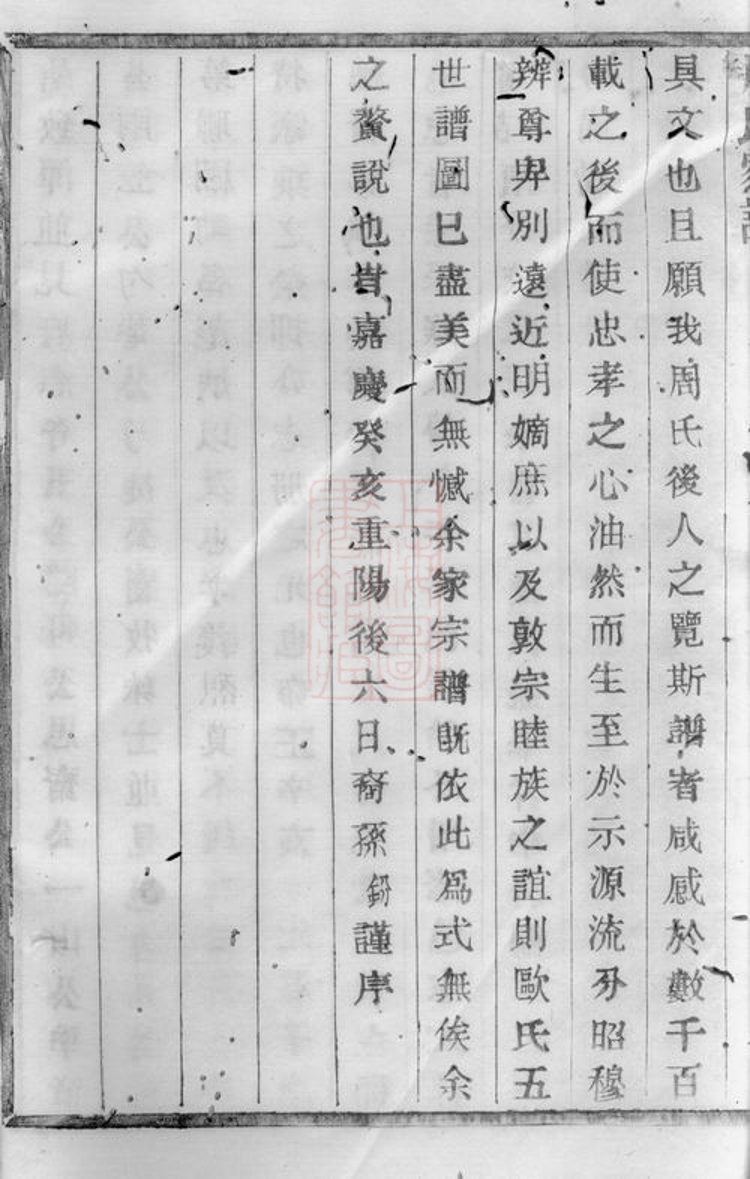 具文也且願我周氏後人之覽斯譜者咸感於數千百
載之後而使忠孝之心油然而生至於示源流分昭穆
辨尊卑別遠近明嫡庶以及敦宗睦族之誼則歐氏五
世譜圖已盡美而無憾余家宗譜既依此爲式無俟余
之贅說也時嘉慶癸亥重陽後六日裔孫謹序